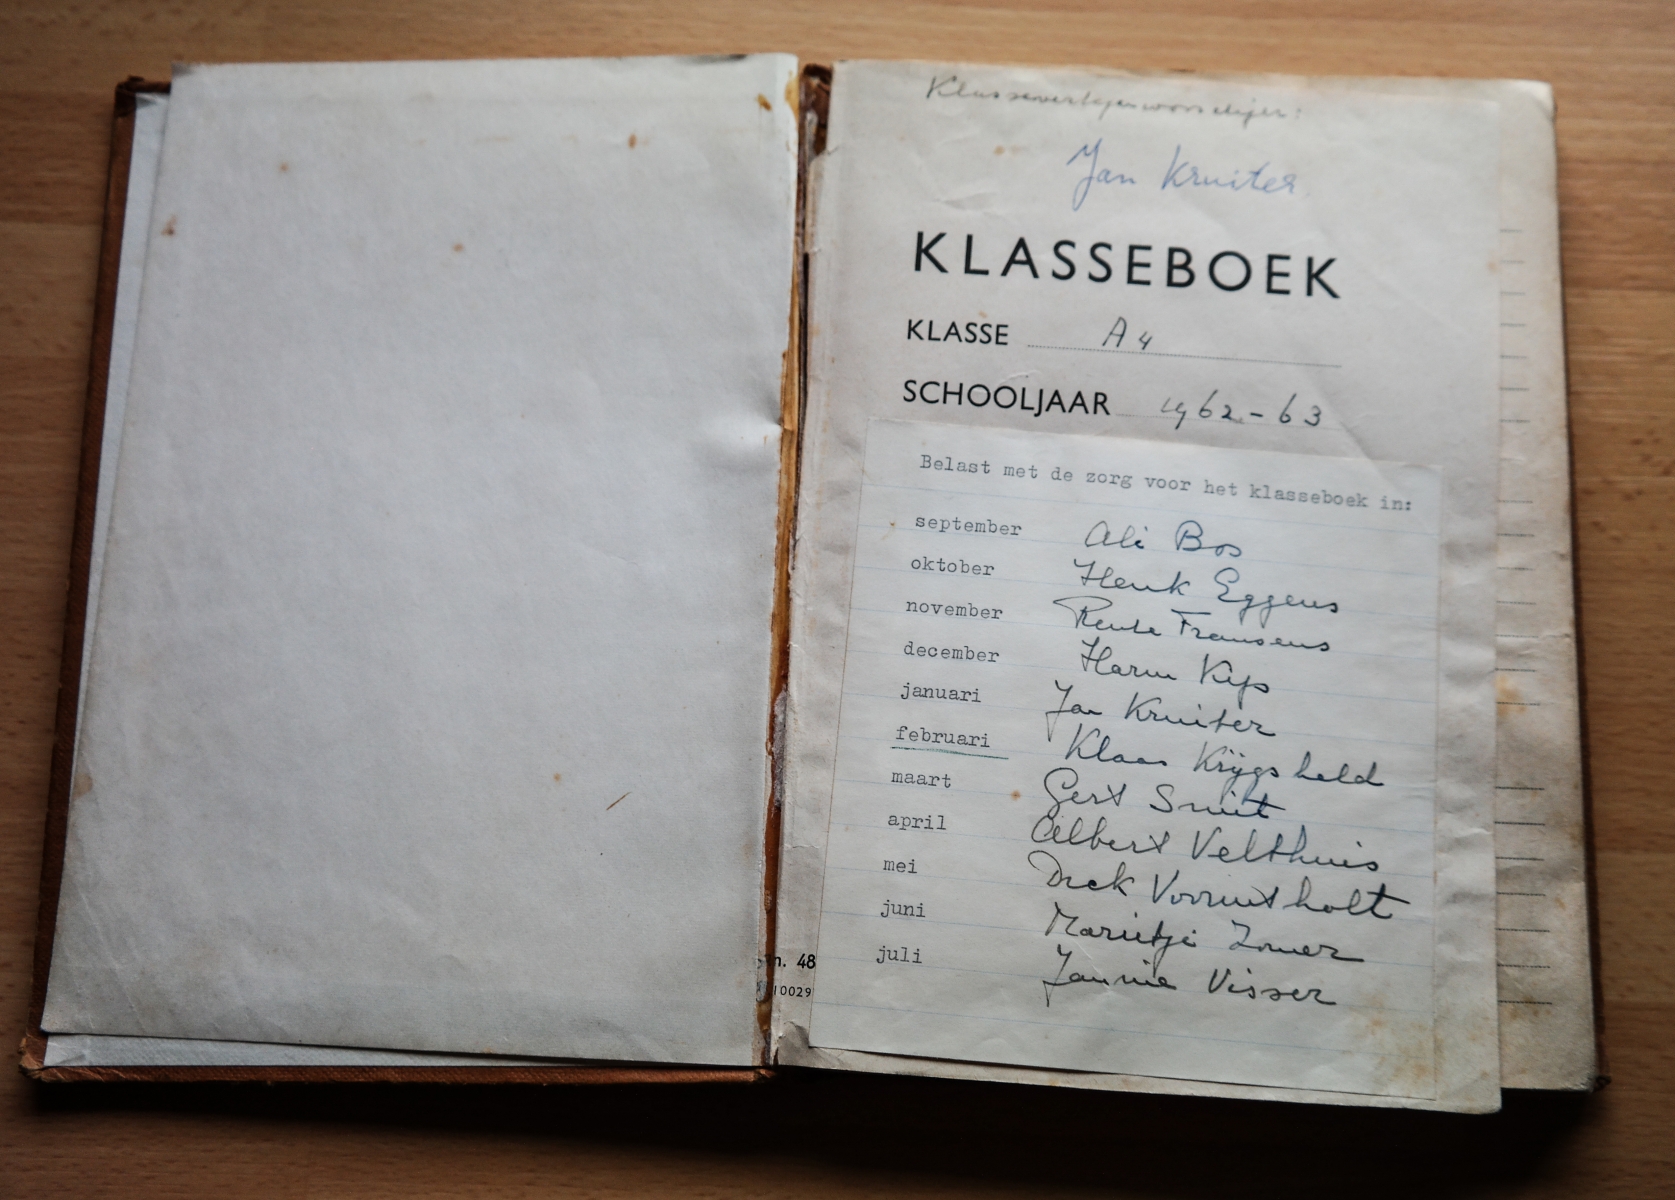 Klassevertegenwoordiger:
Jan Kruiter.
KLASSEBOEK
KLASSE A4
SCHOOLJAAR 1962-63
Belast met de zorg voor het klasseboek in:
september Ali Bos
oktober Henk Eggens
november Rente Fransens
december Harm Kip
januari Jan Kruiter
februari Klaas Krijgsheld
maart Gert Smit
april Albert Velthuis
mei Dick Vorruitholt
juni Marietje Zomer
juli Jannie Visser
n. 48
10029